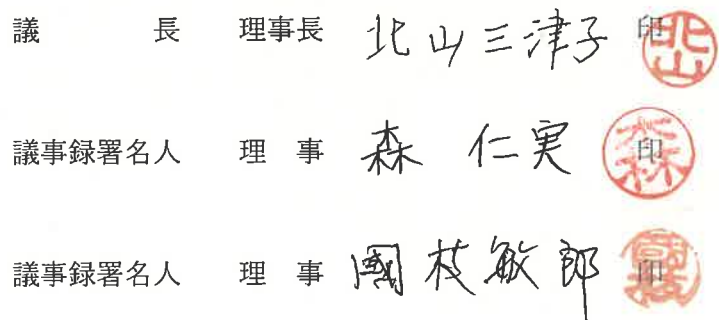 議長 理事長 北山三津子 印 北山
議事録署名人 理事 森 仁実 印 森
議事録署名人 理事 國枝敏郎 印